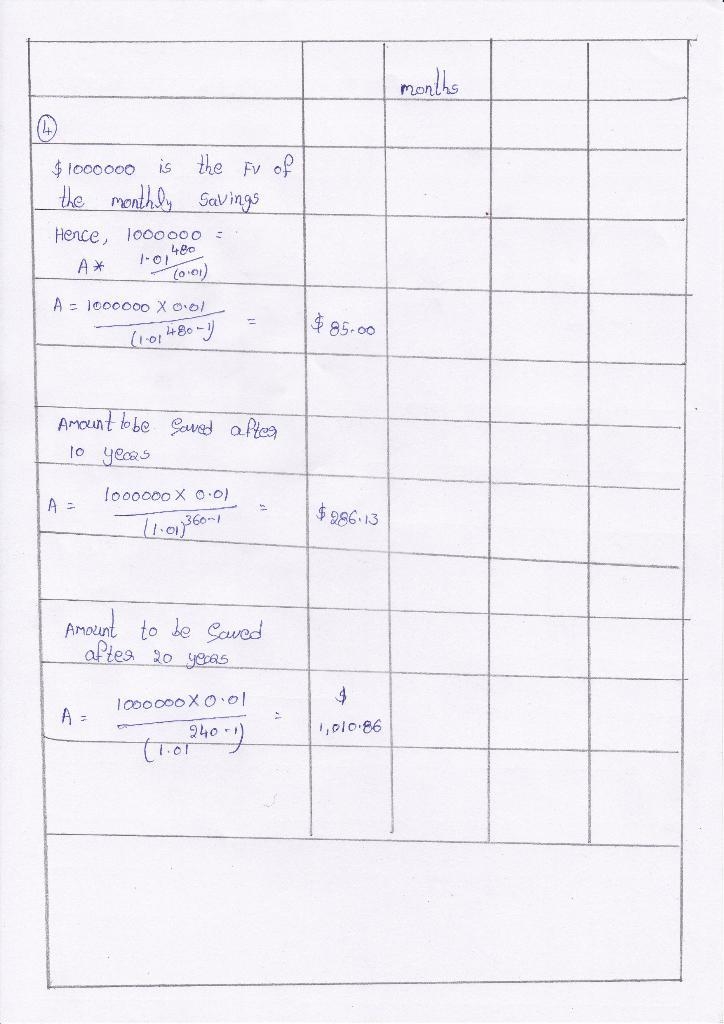 months
④
$1000000 is the FV of
the monthly savings
Hence, 1000000 =
A* 1.01^480/(0.01)
A = 1000000 X 0.01 / (1.01^480-1) = $85.00
Amount to be saved after
10 years
A = 1000000 X 0.01 / (1.01)^360-1 = $286.13
Amount to be saved
after 20 years
A = 1000000 X 0.01 / (1.01^240-1) = $ 1,010.86